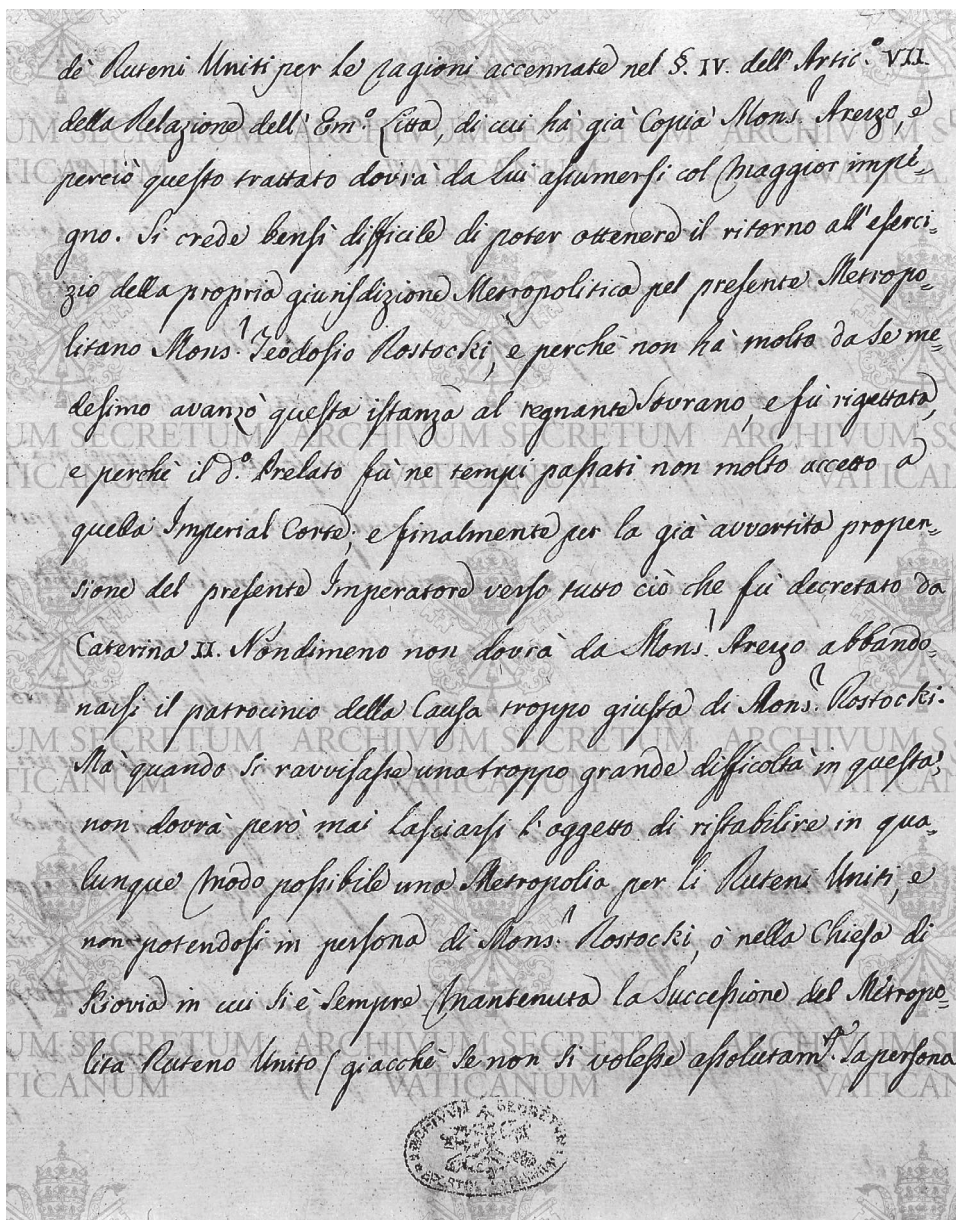 dè Ruteni Uniti per le ragioni accennate nel §. IV. dell' Artic.º VII.
della Relazione dell' Em.º Litta, di cui hà già Copia Mons.r Arezzo, e
perciò questo trattato dovrà da lui assumersi col maggior impe=
gno. Si crede bensì difficile di poter ottenere il ritorno all' eserci=
zio della propria giurisdizione Metropolitica pel presente Metropo=
litano Mons.r Teodosio Rostocki, e perchè non hà molto da se me=
desimo avanzò questa istanza al regnante Sovrano, e fù rigettata,
e perchè il d.º Prelato fù ne tempi passati non molto accetto a
quella Imperial Corte; e finalmente per la già avvertita propen=
sione del presente Imperatore verso tutto ciò che fù decretato da
Caterina II. Nondimeno non dovrà da Mons.r Arezzo abbando=
narsi il patrocinio della Causa troppo giusta di Mons.r Rostocki.
Mà quando si ravvisasse una troppo grande difficoltà in questa,
non dovrà però mai lasciarsi l'oggetto di ristabilire in qua=
lunque modo possibile una Metropolia per li Ruteni Uniti, e
non potendosi in persona di Mons.r Rostocki, ò nella Chiesa di
Kiovia in cui si è sempre mantenuta la Successione del Metropo=
lita Ruteno Unito (giacchè se non si volesse assolutam.te la persona
ARCHIVUM SECRETUM VATICANUM
ARCHIVUM SECRETUM